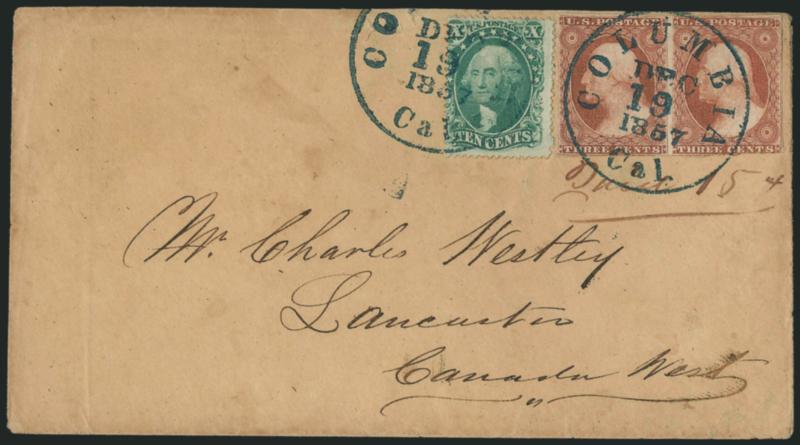 COLUMBIA
DEC
19
1857
Cal
X U.S. POSTAGE X
TEN CENTS
U.S. POSTAGE
THREE CENTS
U.S. POSTAGE
THREE CENTS
COLUMBIA
DEC
19
1857
Cal.
Paid 15
Mr. Charles Westley
Lancaster
Canada West